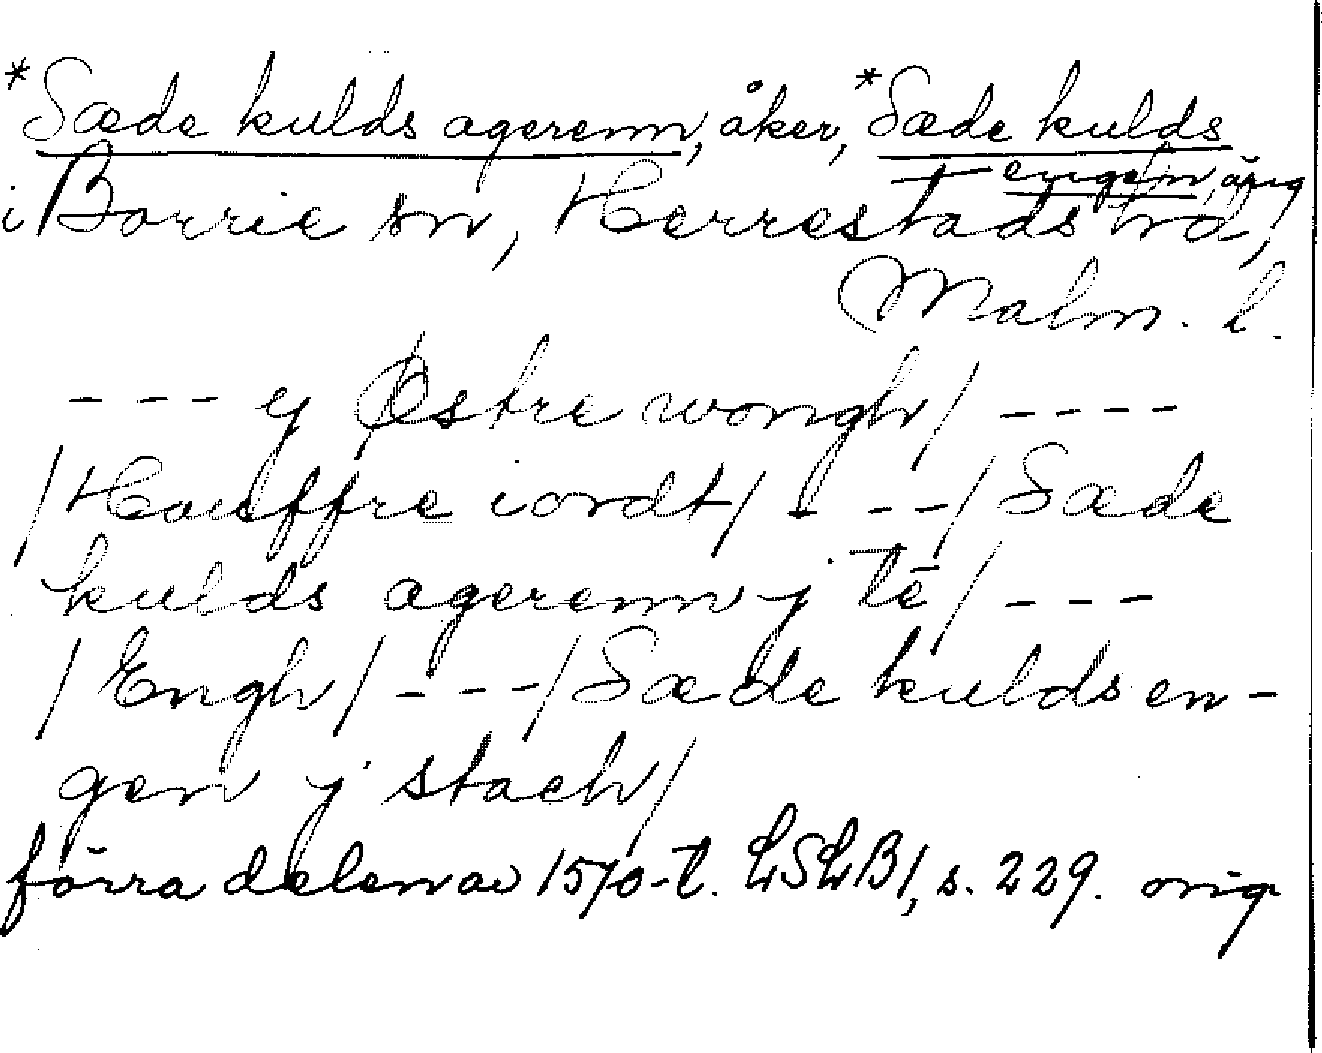 *Sæde kulds agerenn, åker, *Sæde kulds
engen, äng
i Borrie sn, Herrestads hd,
Malm. l.
--- y Østre wongh/ ----
/Houffre iordt/ ---/Sæde
kulds agerenn y té/ ---
/Engh/ ---/Sæde kulds en-
gen y stach/
förra delen av 1570-t. LSLB1, s. 229. orig